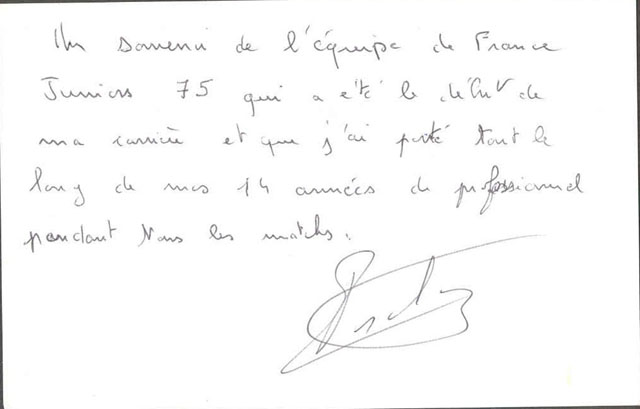 Un souvenir de l'équipe de France
Juniors 75 qui a été le début de
ma carrière et que j'ai porté tout le
long de mes 14 années de professionnel
pendant tous les matchs.